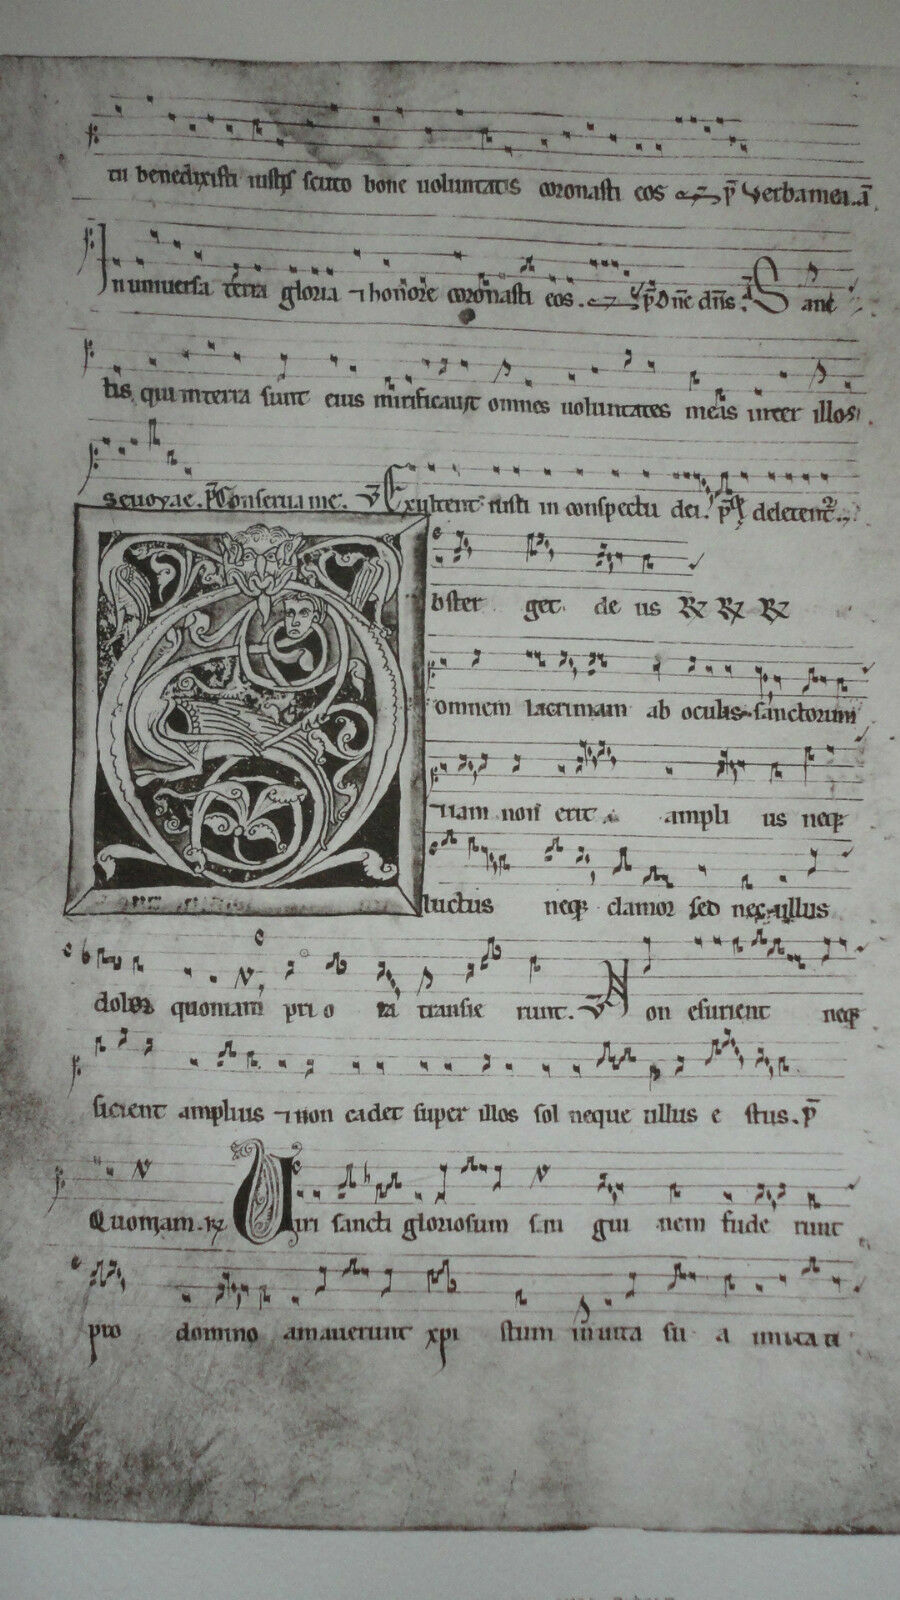 tu benedixisti iustis scuto bone uoluntatis coronasti eos p̄ Verba mea. a̅
In uniuersa terra gloria ⁊ honore coronasti eos. p̄ Dn̄e dn̄s. a̅ Sanc
tis qui in terra sunt eius mirificauit omnes uoluntates meas inter illos.
seuouae. p̄ Conserua me. V Exultent iusti in conspectu dei. p̄ delectent̃
bster get de us ℞ ℞ ℞
omnem lacrimam ab oculis sanctorum
⁊ iam non erit ampli us neq;
luctus neq; clamor sed nec ullus
dolor quoniam pri o ra transie runt. V Non esurient neq;
sicient amplius ⁊ non cadet super illos sol neque ullus e stus. p̄
Quoniam. ℞ Uiri sancti gloriosum san gui nem fude runt
pro domino amauerunt xpi stum in uita su a imitati